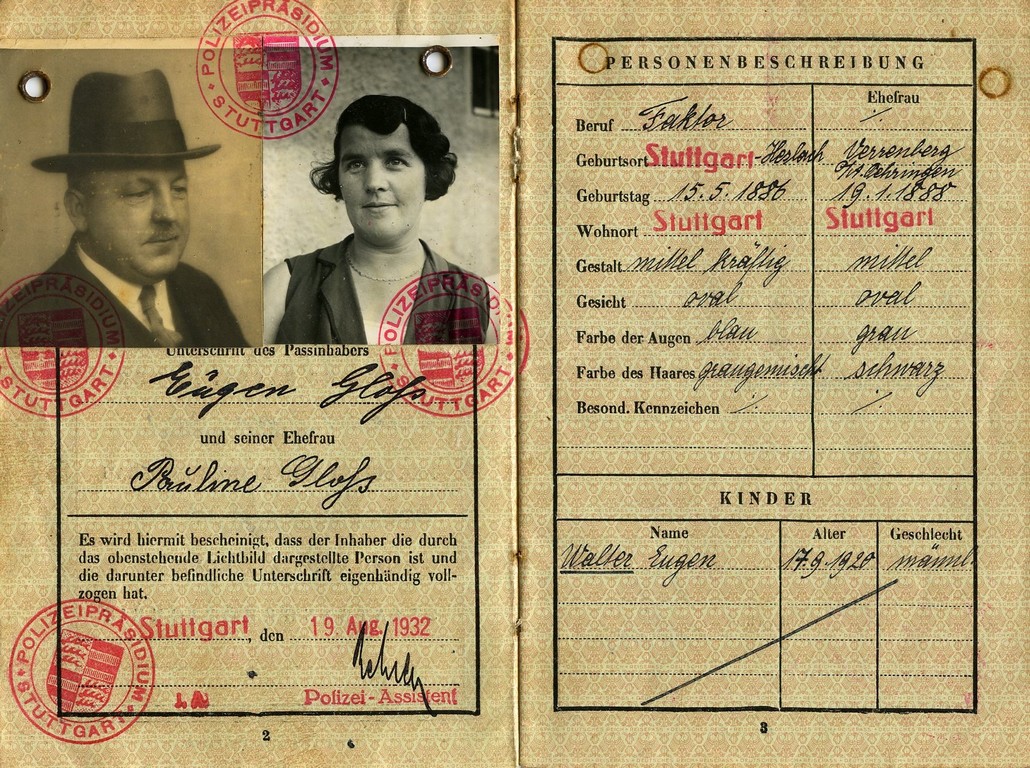 POLIZEIPRÄSIDIUM
STUTTGART
POLIZEIPRÄSIDIUM
STUTTGART
POLIZEIPRÄSIDIUM
STUTTGART
Unterschrift des Passinhabers
Eugen Gloss
und seiner Ehefrau
Pauline Gloss
Es wird hiermit bescheinigt, dass der Inhaber die durch
das obenstehende Lichtbild dargestellte Person ist und
die darunter befindliche Unterschrift eigenhändig voll-
zogen hat.
Stuttgart, den 19. Aug. 1932
I.A.
Polizei-Assistent
POLIZEIPRÄSIDIUM
STUTTGART
2
PERSONENBESCHREIBUNG
Ehefrau
Beruf Faktor ./.
Geburtsort Stuttgart-Heslach Verrenberg
Kr. Oehringen
Geburtstag 15.5.1886 19.1.1888
Wohnort Stuttgart Stuttgart
Gestalt mittel kräftig mittel
Gesicht oval oval
Farbe der Augen blau grau
Farbe des Haares graugemischt schwarz
Besond. Kennzeichen ./. ./.
KINDER
Name Alter Geschlecht
Walter Eugen 17.9.1920 männl.
3